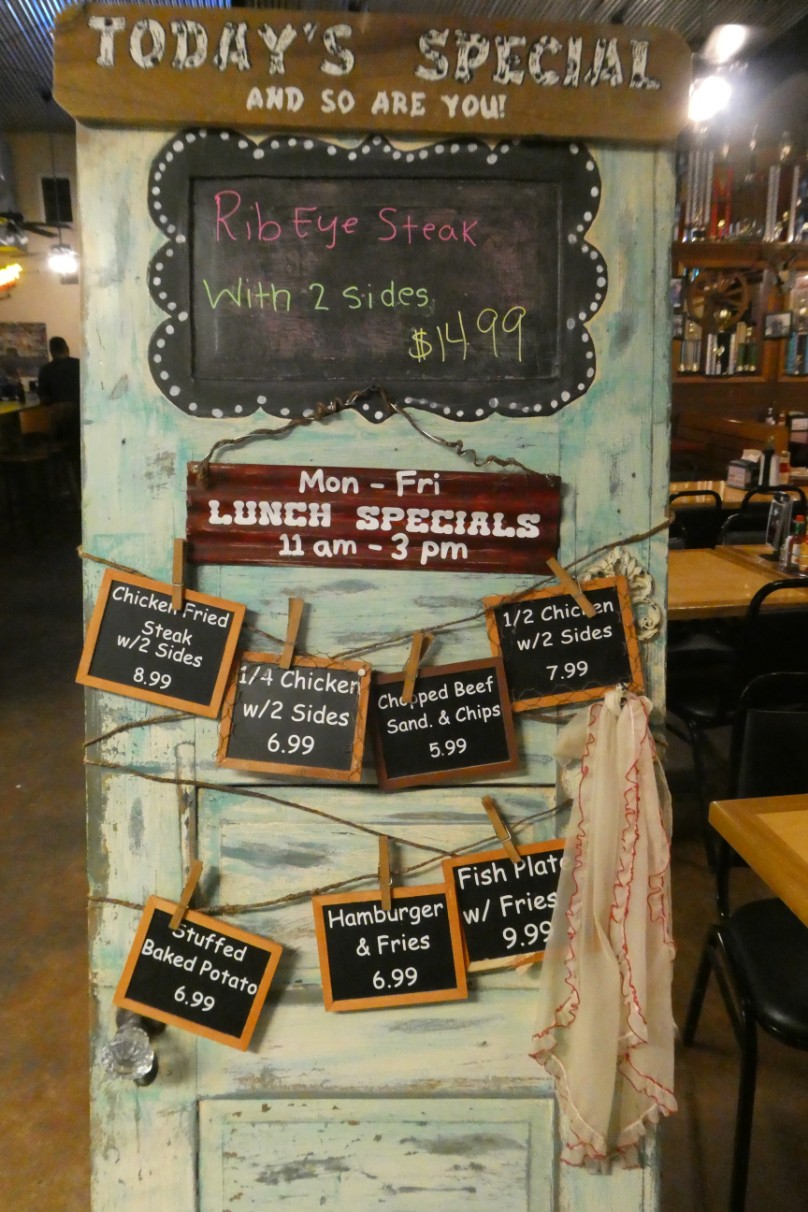 TODAY'S SPECIAL
AND SO ARE YOU!
Rib Eye Steak
With 2 Sides
$14.99
Mon - Fri
LUNCH SPECIALS
11 am - 3 pm
Chicken Fried
Steak
w/2 Sides
8.99
1/4 Chicken
w/2 Sides
6.99
Chopped Beef
Sand. & Chips
5.99
1/2 Chicken
w/2 Sides
7.99
Stuffed
Baked Potato
6.99
Hamburger
& Fries
6.99
Fish Plate
w/ Fries
9.99